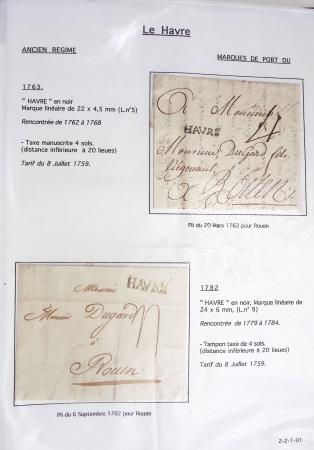 Le Havre
ANCIEN REGIME
MARQUES DE PORT DU
1763.
" HAVRE " en noir
Marque linéaire de 22 x 4,5 mm (L.n°5)
Rencontrée de 1762 à 1768
- Taxe manuscrite 4 sols.
(distance inférieure à 20 lieues)
Tarif du 8 Juillet 1759.
A Monsieur
HAVRE
Monsieur Dugard fils
Négociant
A Rouen
Pli du 20 Mars 1763 pour Rouen
HAVRE
Monsieur
Monsieur Dugard
à
Rouen
Pli du 6 Septembre 1782 pour Rouen
1782
"HAVRE" en noir, Marque linéaire de
24 x 6 mm, (L.n° 9)
Rencontrée de 1779 à 1784.
- Tampon taxe de 4 sols.
(distance inférieure à 20 lieues)
Tarif du 8 Juillet 1759.
2-2-1-01